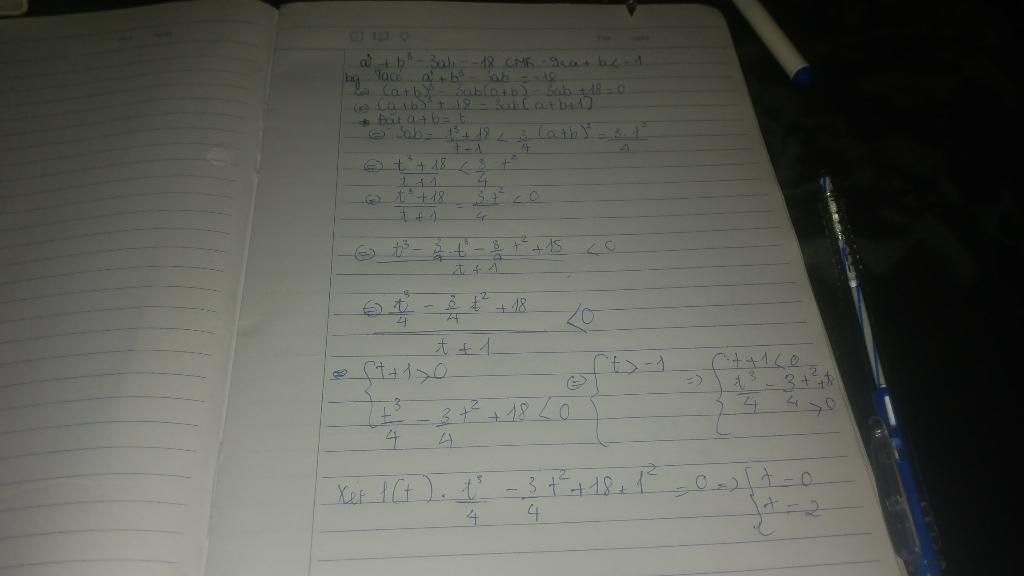 a³ + b³ - 3ab = -18 CMR -9 < a + b < -1
bg Ta có: a³ + b³ - 3ab = -18
⇔ (a+b)³ - 3ab(a+b) - 3ab + 18 = 0
⇔ (a+b)³ + 18 = 3ab(a+b+1)
* Đặt a+b = t
⇔ 3ab = (t³+18)/(t+1) < 3/4 (a+b)² = 3t²/4
⇔ (t³+18)/(t+1) < 3/4 t²
⇔ (t³+18)/(t+1) - 3t²/4 < 0
⇔ (t³ - 3/4 t³ - 3/4 t² + 18)/(t+1) < 0
⇔ (t³/4 - 3/4 t² + 18)/(t+1) < 0
⇔ { t+1 > 0 ⇔ { t > -1 ⇒ { t+1 < 0
t³/4 - 3/4 t² + 18 < 0 t³/4 - 3/4 t² + 18 > 0
Xét f(t) = t³/4 - 3/4 t² + 18, f' = 0 ⇒ { t = 0
t = 2